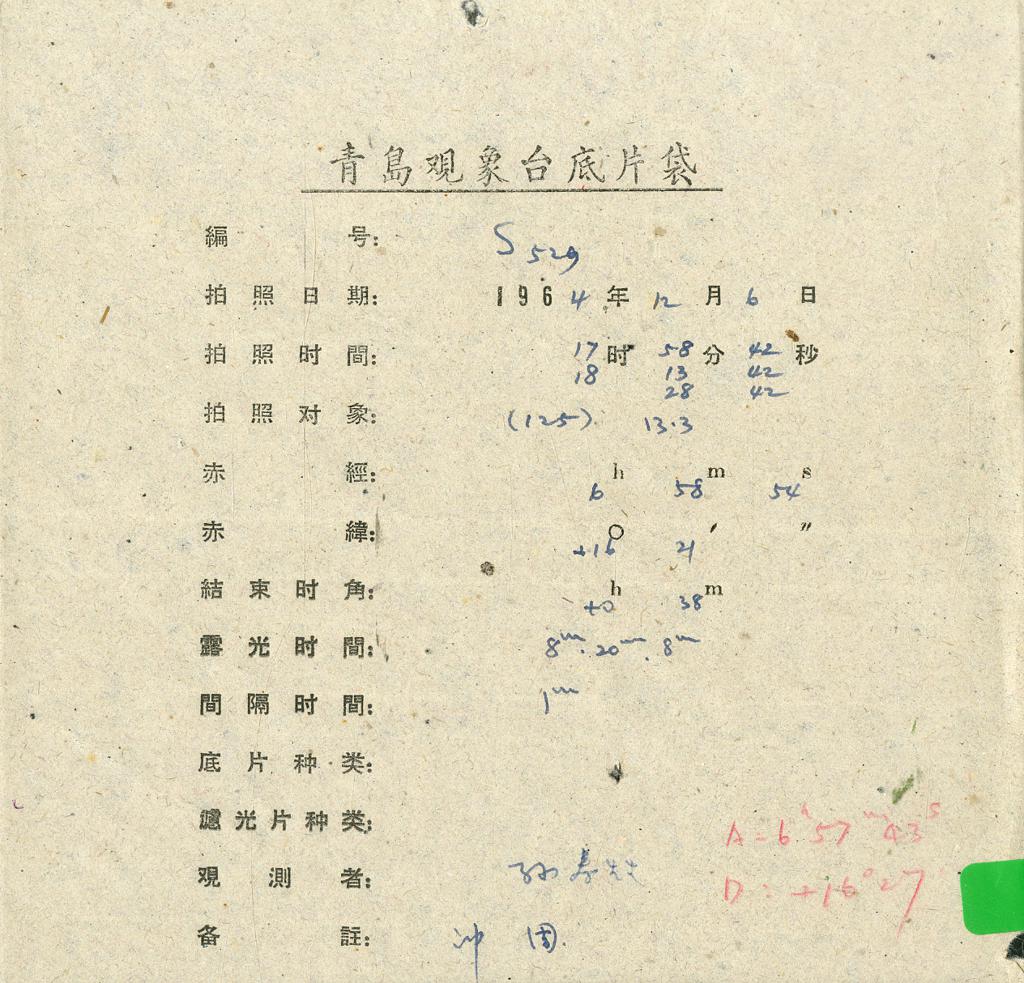 青島观象台底片袋
編号: S529
拍照日期: 1964年12月6日
拍照时間: 17时58分42秒
18 13 42
28 42
拍照对象: (125) 13.3
赤經: 6h 58m 54s
赤緯: +16° 21′ ″
結束时角: +0h 38m
露光时間: 8m. 20m. 8m
間隔时間: 1m
底片种类:
濾光片种类:
A=6h57m43s
观測者: 孙寿
D=+16°27′
备註: 冲 周.